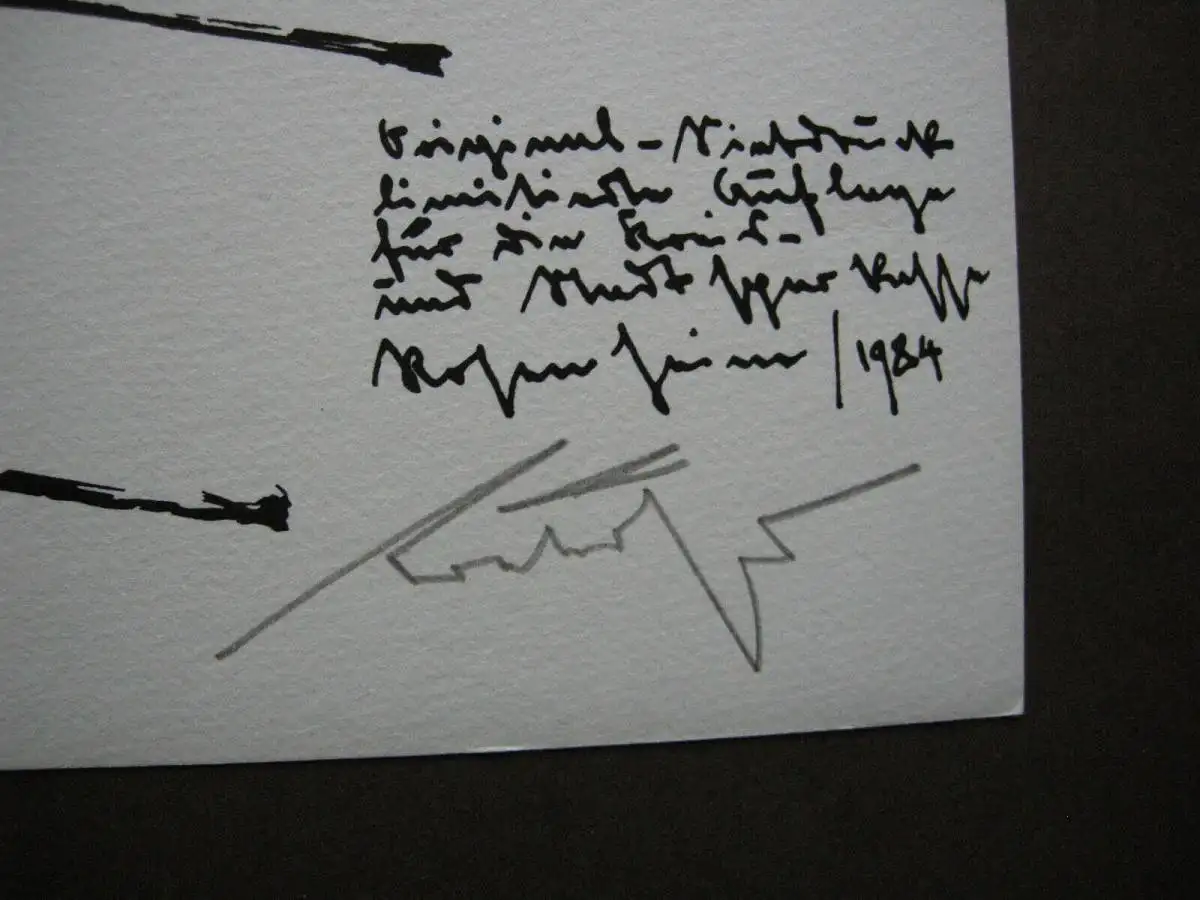 Original-Siebdruck
limitierte Auflage
für die Kreis-
und Stadtsparkasse
Rosenheim / 1984